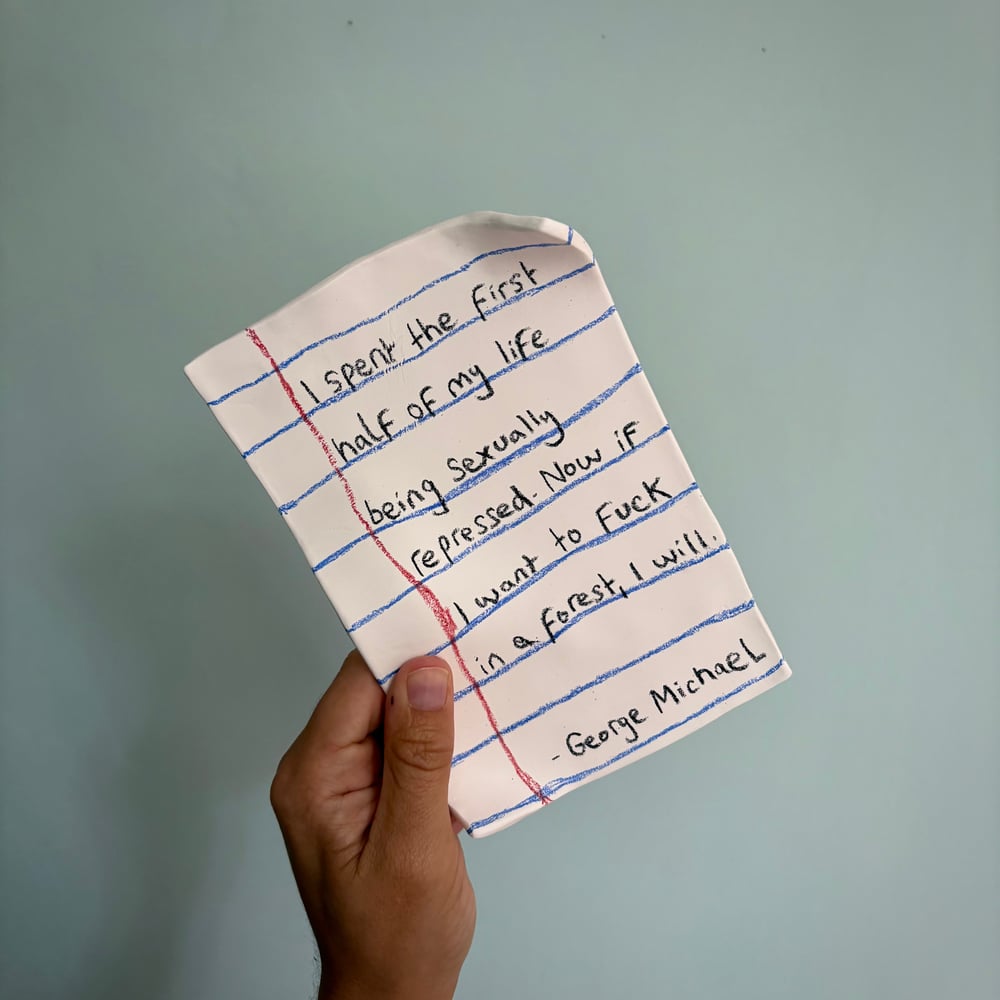 I spent the first
half of my life
being sexually
repressed. Now if
I want to fuck
in a forest, I will.
- George Michael